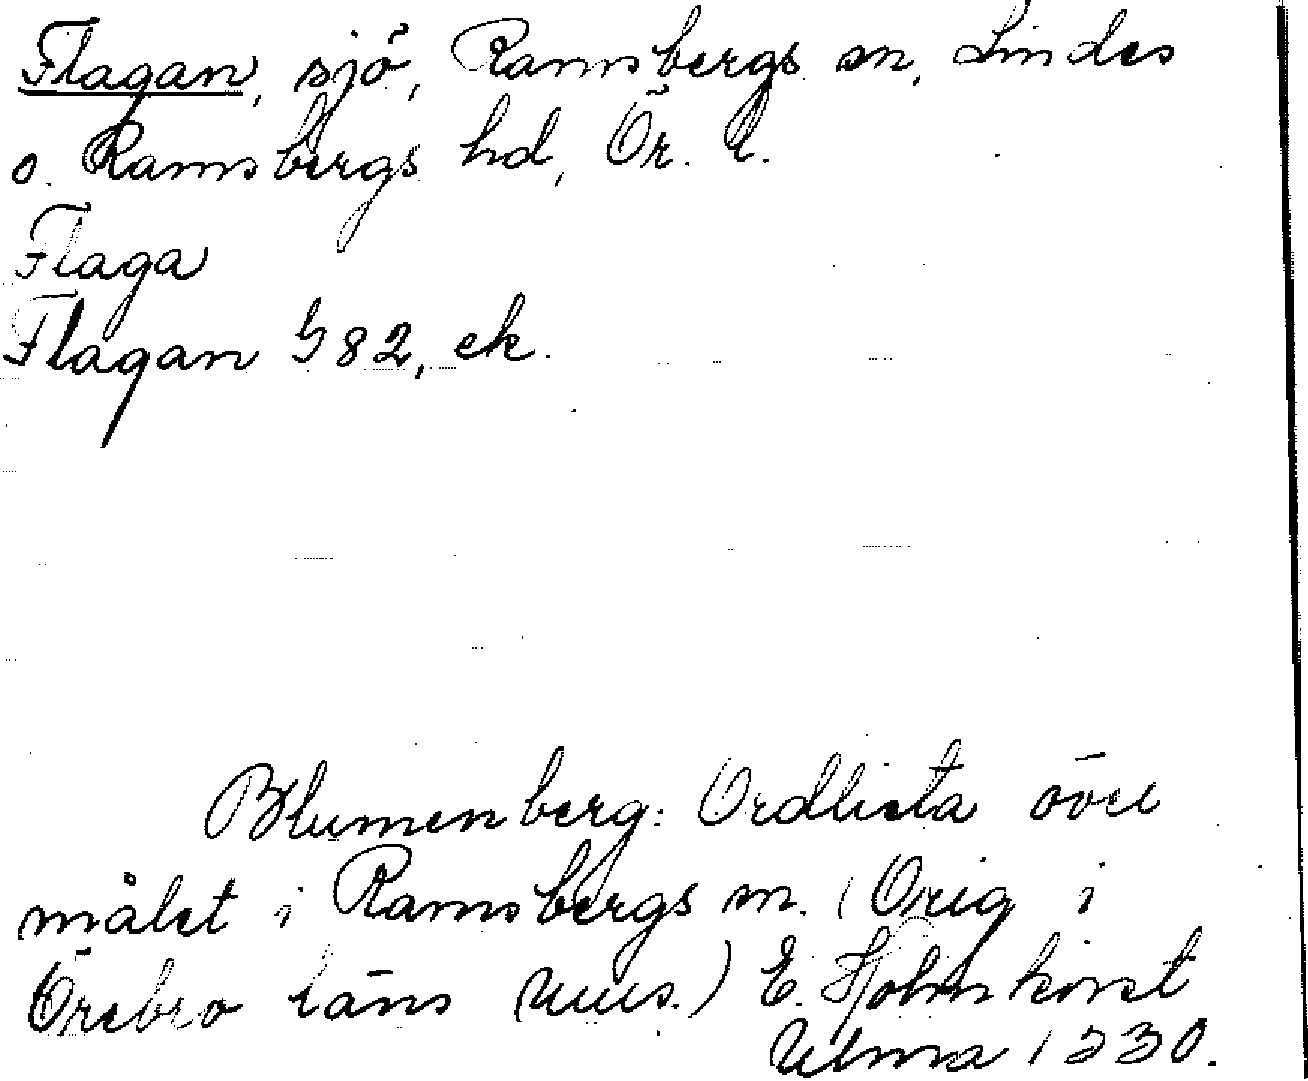 Flagan, sjö, Ramsbergs sn, Lindes
o. Ramsbergs hd, Ör. l.
Flaga
Flagan G82, ek.
Blumenberg: Ordlista över
målet i Ramsbergs sn. (Orig i
Örebro läns Mus.) E. Holmkvist
Ulma 1330.